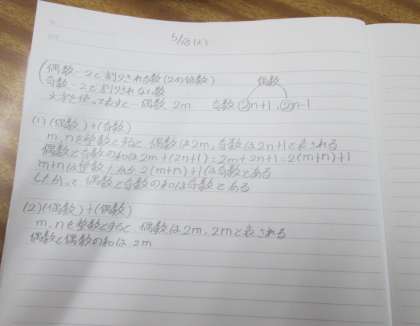 5/18(火)
偶数…2で割りきれる数(2の倍数)
奇数…2で割りきれない数
文字を使って表すと…偶数 2m 奇数 2n+1, 2n-1
偶数
(1)(偶数)+(奇数)
m,nを整数とすると、偶数は2m,奇数は2n+1と表される
偶数と奇数の和は2m+(2n+1)=2m+2n+1=2(m+n)+1
m+nは整数だから、2(m+n)+1は奇数である
したがって、偶数と奇数の和は奇数である
(2)(偶数)+(偶数)
m,nを整数とすると、偶数は2m, 2mと表される
偶数と偶数の和は 2m